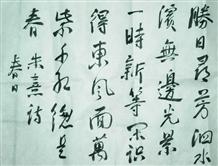 勝日尋芳泗水
濱無邊光景
一時新等閑識
得東風面萬
紫千紅總是
春 朱熹詩
春日